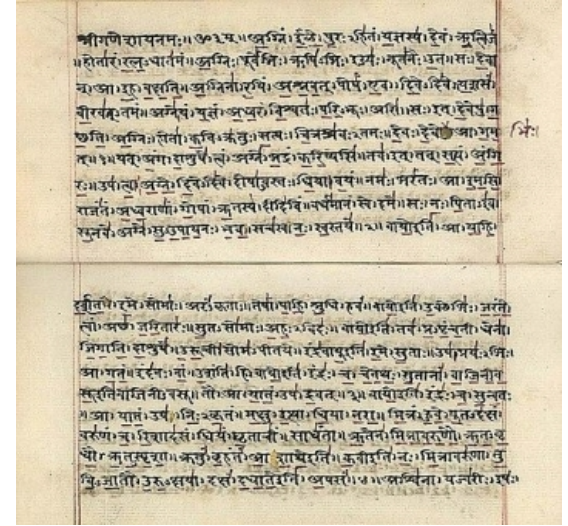 श्रीगणेशायनमः॥ॐ३म्॥ अग्निं। ईळे। पुरःऽहितं। यज्ञस्य। देवं। ऋत्विजं
॥होतारं। रत्नऽधातमं॥ अग्निः। पूर्वेभिः। ऋषिऽभिः। ईड्यः। नूतनैः। उत। सः। देवा
न्। आ। इह। वक्षति॥ अग्निना। रयिं। अश्नवत्। पोषं। एव। दिवेऽदिवे। यशसं
वीरवत्ऽतमं॥ अग्ने। यं। यज्ञं। अध्वरं। विश्वतः। परिऽभूः। असि। सः। इत्। देवेषु। ग
च्छति॥ अग्निः। होता। कविऽक्रतुः। सत्यः। चित्रश्रवःऽतमः॥ देवः। देवे। आ। गम
भिः।
त्॥१॥ यत्। अंग। दाशुषे। त्वं। अग्ने। भद्रं। करिष्यसि। तव। इत्। तत्। सत्यं। अंगि
रः॥ उप। त्वा। अग्ने। दिवेऽदिवे। दोषाऽवस्तः। धिया। वयं। नमः। भरंतः। आ। इमसि
राजंतं। अध्वराणां। गोपां। ऋतस्य। दीदिविं। वर्धमानं। स्वे। दमे॥ सः। नः। पिताऽइव
सूनवे। अग्ने। सुऽउपायनः। भव। सचस्व। नः। स्वस्तये॥२॥ वायो इति। आ। याहि।
दर्शत। इमे। सोमाः। अरंऽकृताः। तेषां। पाहि। श्रुधि। हवं॥ वायो इति। उक्थेभिः। जरंते
त्वां। अच्छ। जरितारः। सुतऽसोमाः। अहःऽविदः॥ वायो इति। तव। प्रऽपृंचती। धेना
जिगाति। दाशुषे। उरूची। सोमऽपीतये॥ इंद्रवायू इति। इमे। सुताः। उप। प्रयःऽभिः।
आ। गतं। इंदवः। वां। उशंति। हि॥ वायो इति। इंद्रः। च। चेतथः। सुतानां। वाजिनीव
सू इति वाजिनीऽवसू। तौ। आ। यातं। उप। द्रवत्॥३॥ वायो इति। इंद्रः। च। सुन्वतः
॥आ। यातं। उप। निःऽकृतं। मक्षु। इत्था। धिया। नरा॥ मित्रं। हुवे। पूतऽदक्षं
वरुणं। च। रिशादसं। धियं। घृताचीं। साधंता॥ ऋतेन। मित्रावरुणौ। ऋतऽवृ
धौ। ऋतऽस्पृशा। क्रतुं। बृहंतं। आशाथे इति॥ कवी इति। नः। मित्रावरुणा। तु
विऽजातौ। उरुऽक्षया। दक्षं। दधाते इति। अपसं॥४॥ अश्विना। यज्वरीः। इषः।